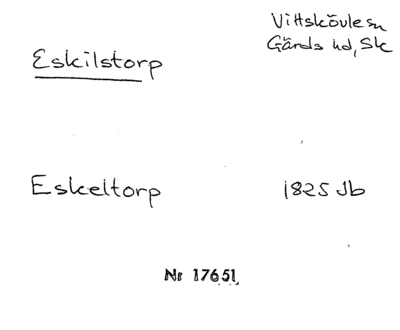 Vittskövle sn
Gärds hd, Sk
Eskilstorp
Eskeltorp 1825 Jb
Nr 17651